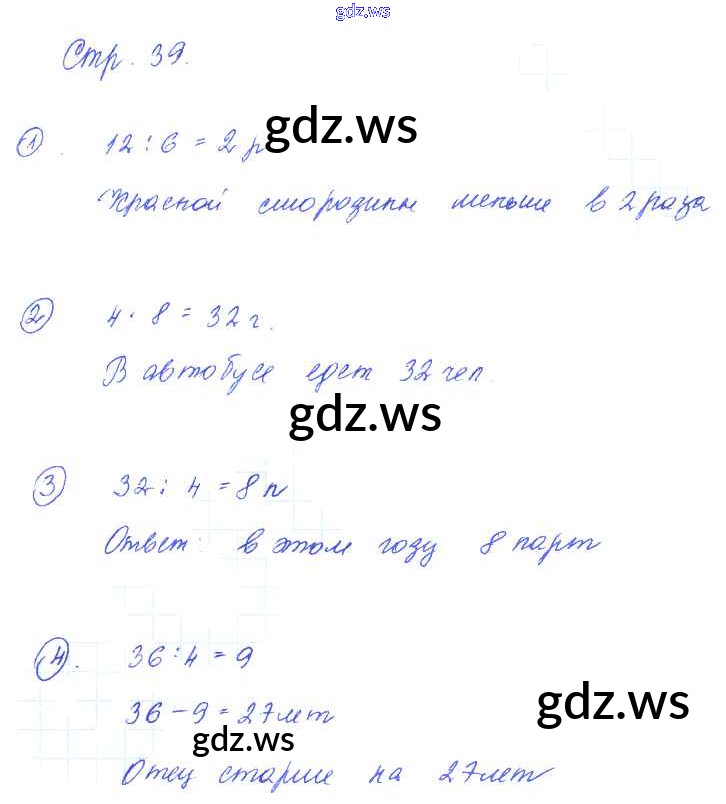 gdz.ws
Стр. 39.
① . 12 : 6 = 2 р
gdz.ws
Красной смородины меньше в 2 раза
② 4 · 8 = 32 г.
В автобусе едет 32 чел.
gdz.ws
③ 32 : 4 = 8 п
Ответ: в этом году 8 парт
④. 36 : 4 = 9
36 - 9 = 27 лет
gdz.ws
gdz.ws
Отец старше на 27 лет